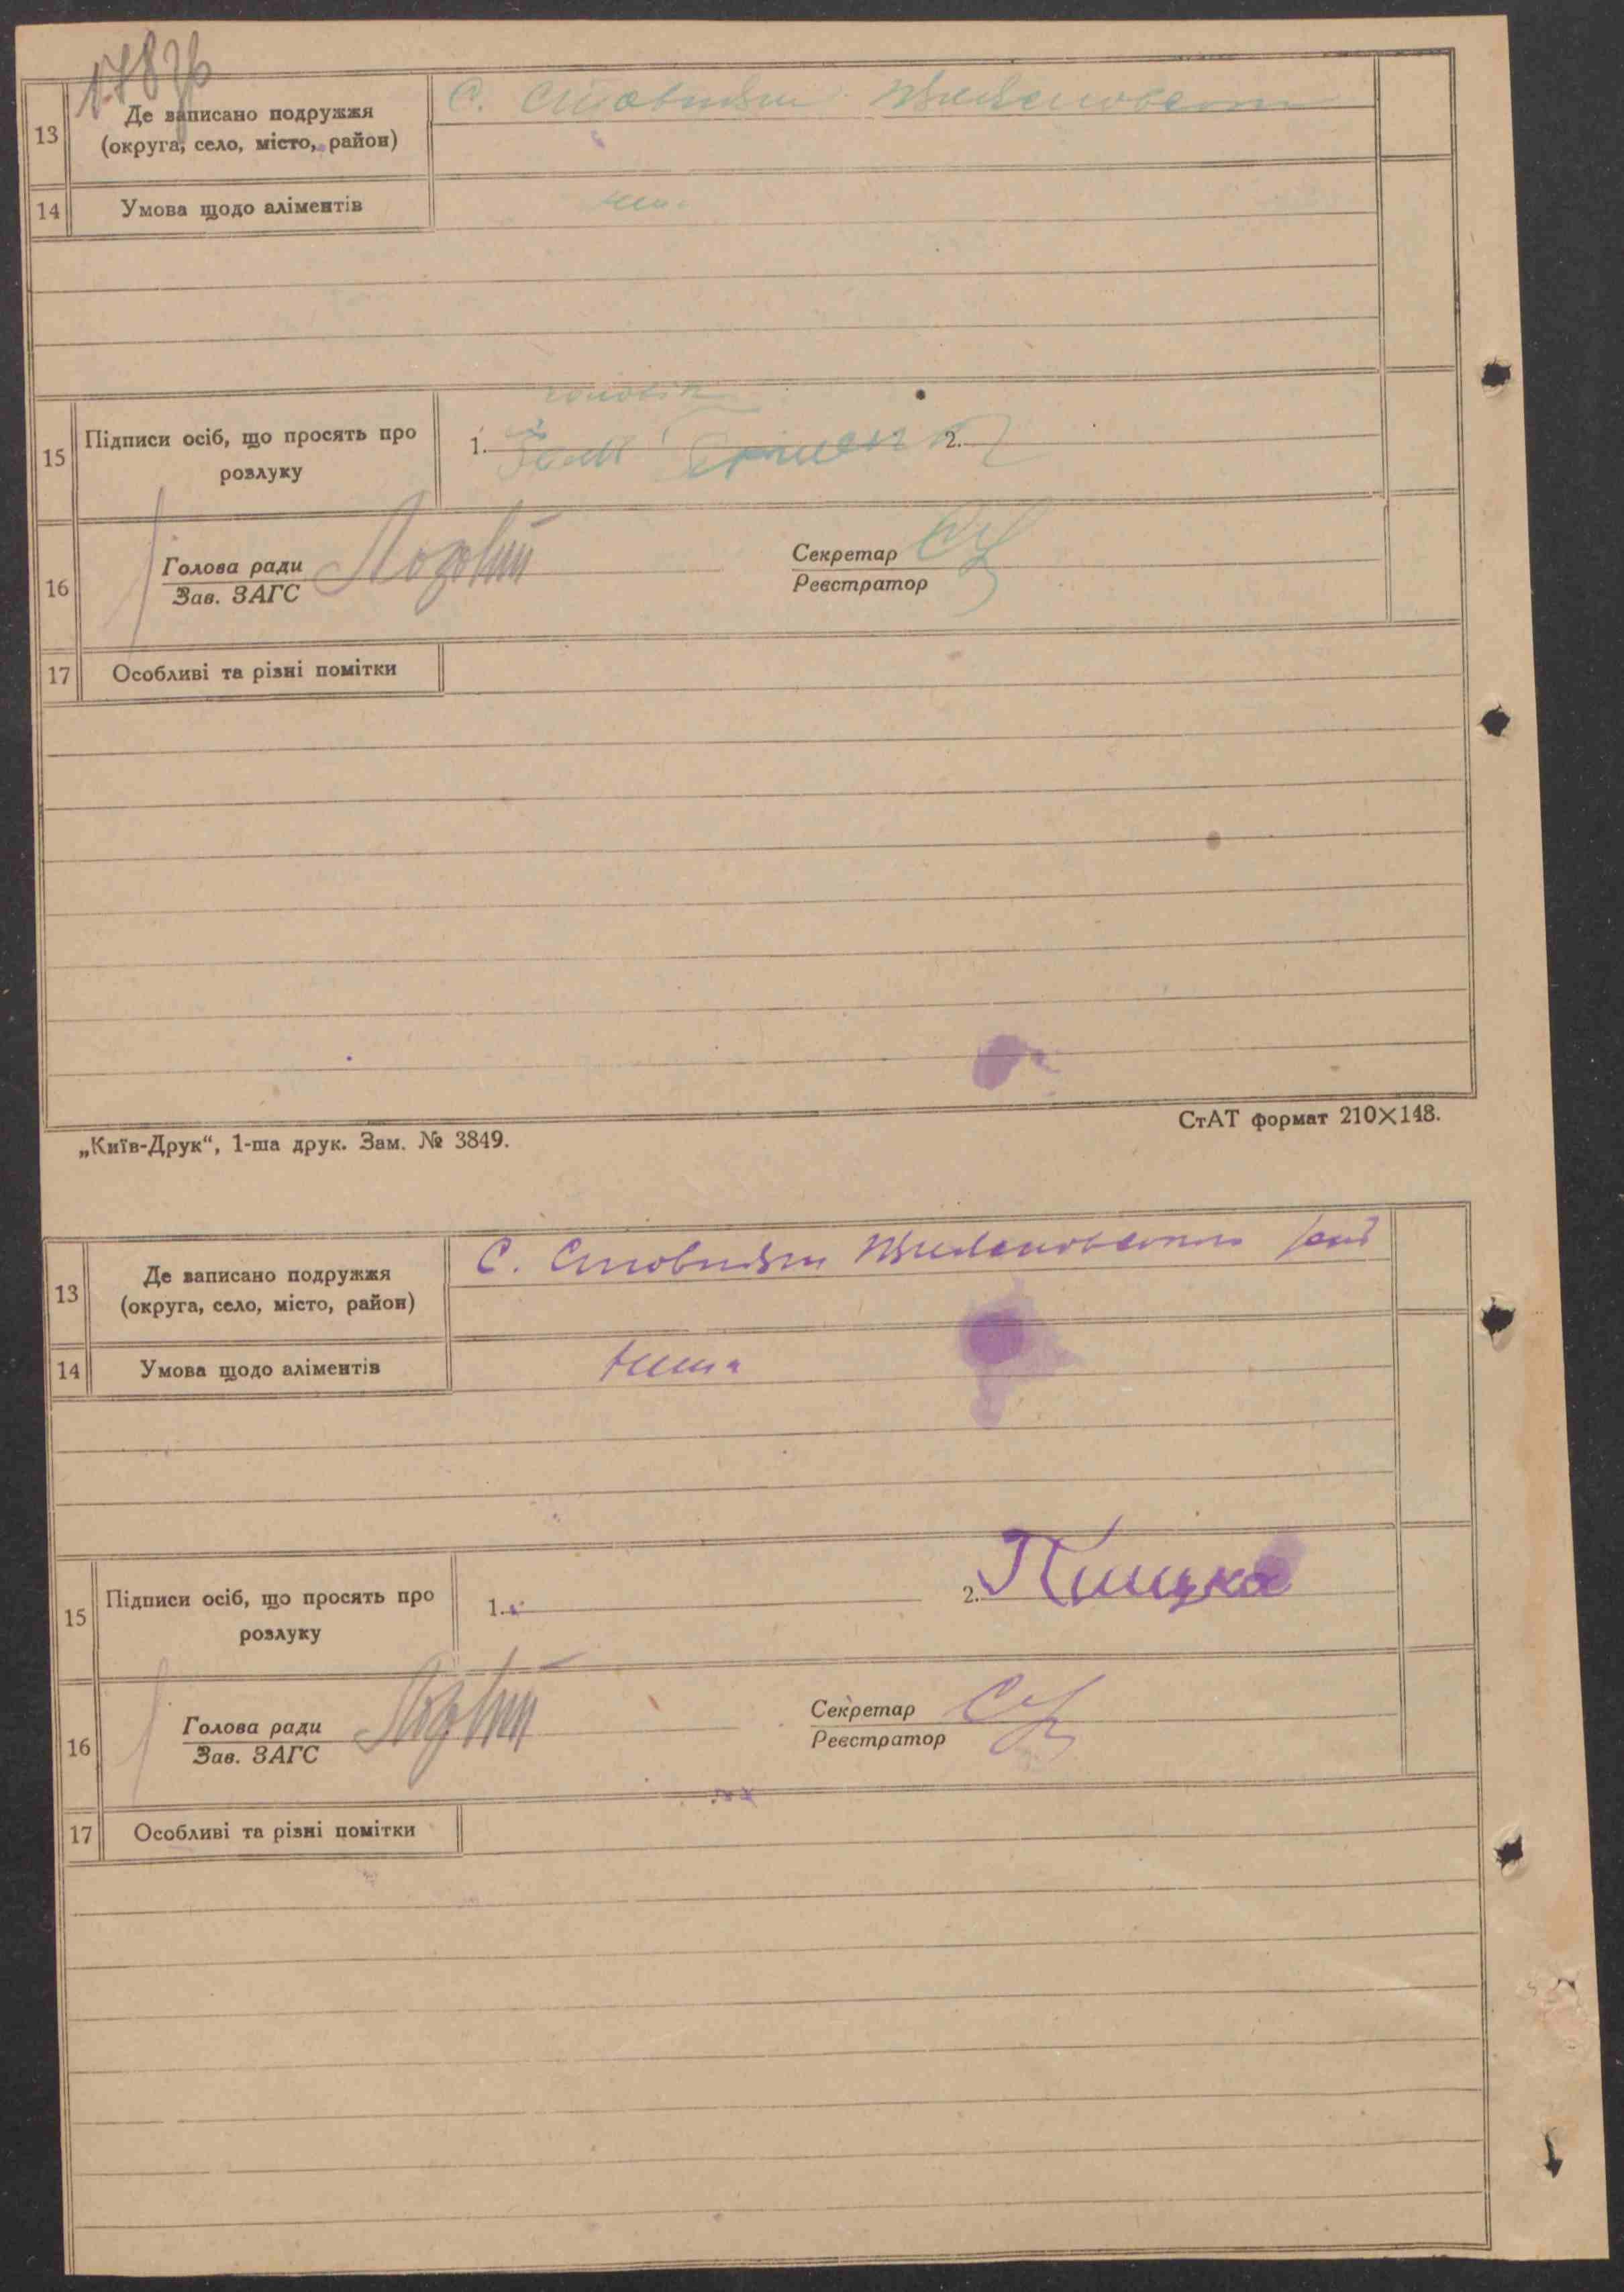 178зв
13
Де записано подружжя
(округа, село, місто, район)
С.
14
Умова щодо аліментів
15
Підписи осіб, що просять про
розлуку
чоловік
1.
2.
16
Голова ради
Зав. ЗАГС
Лозовий
Секретар
Реєстратор
17
Особливі та різні помітки
„Київ-Друк“, 1-ша друк. Зам. № 3849.
СтАТ формат 210×148.
13
Де записано подружжя
(округа, село, місто, район)
С.
14
Умова щодо аліментів
Нема
15
Підписи осіб, що просять про
розлуку
1.
2.
16
Голова ради
Зав. ЗАГС
Лозовий
Секретар
Реєстратор
17
Особливі та різні помітки